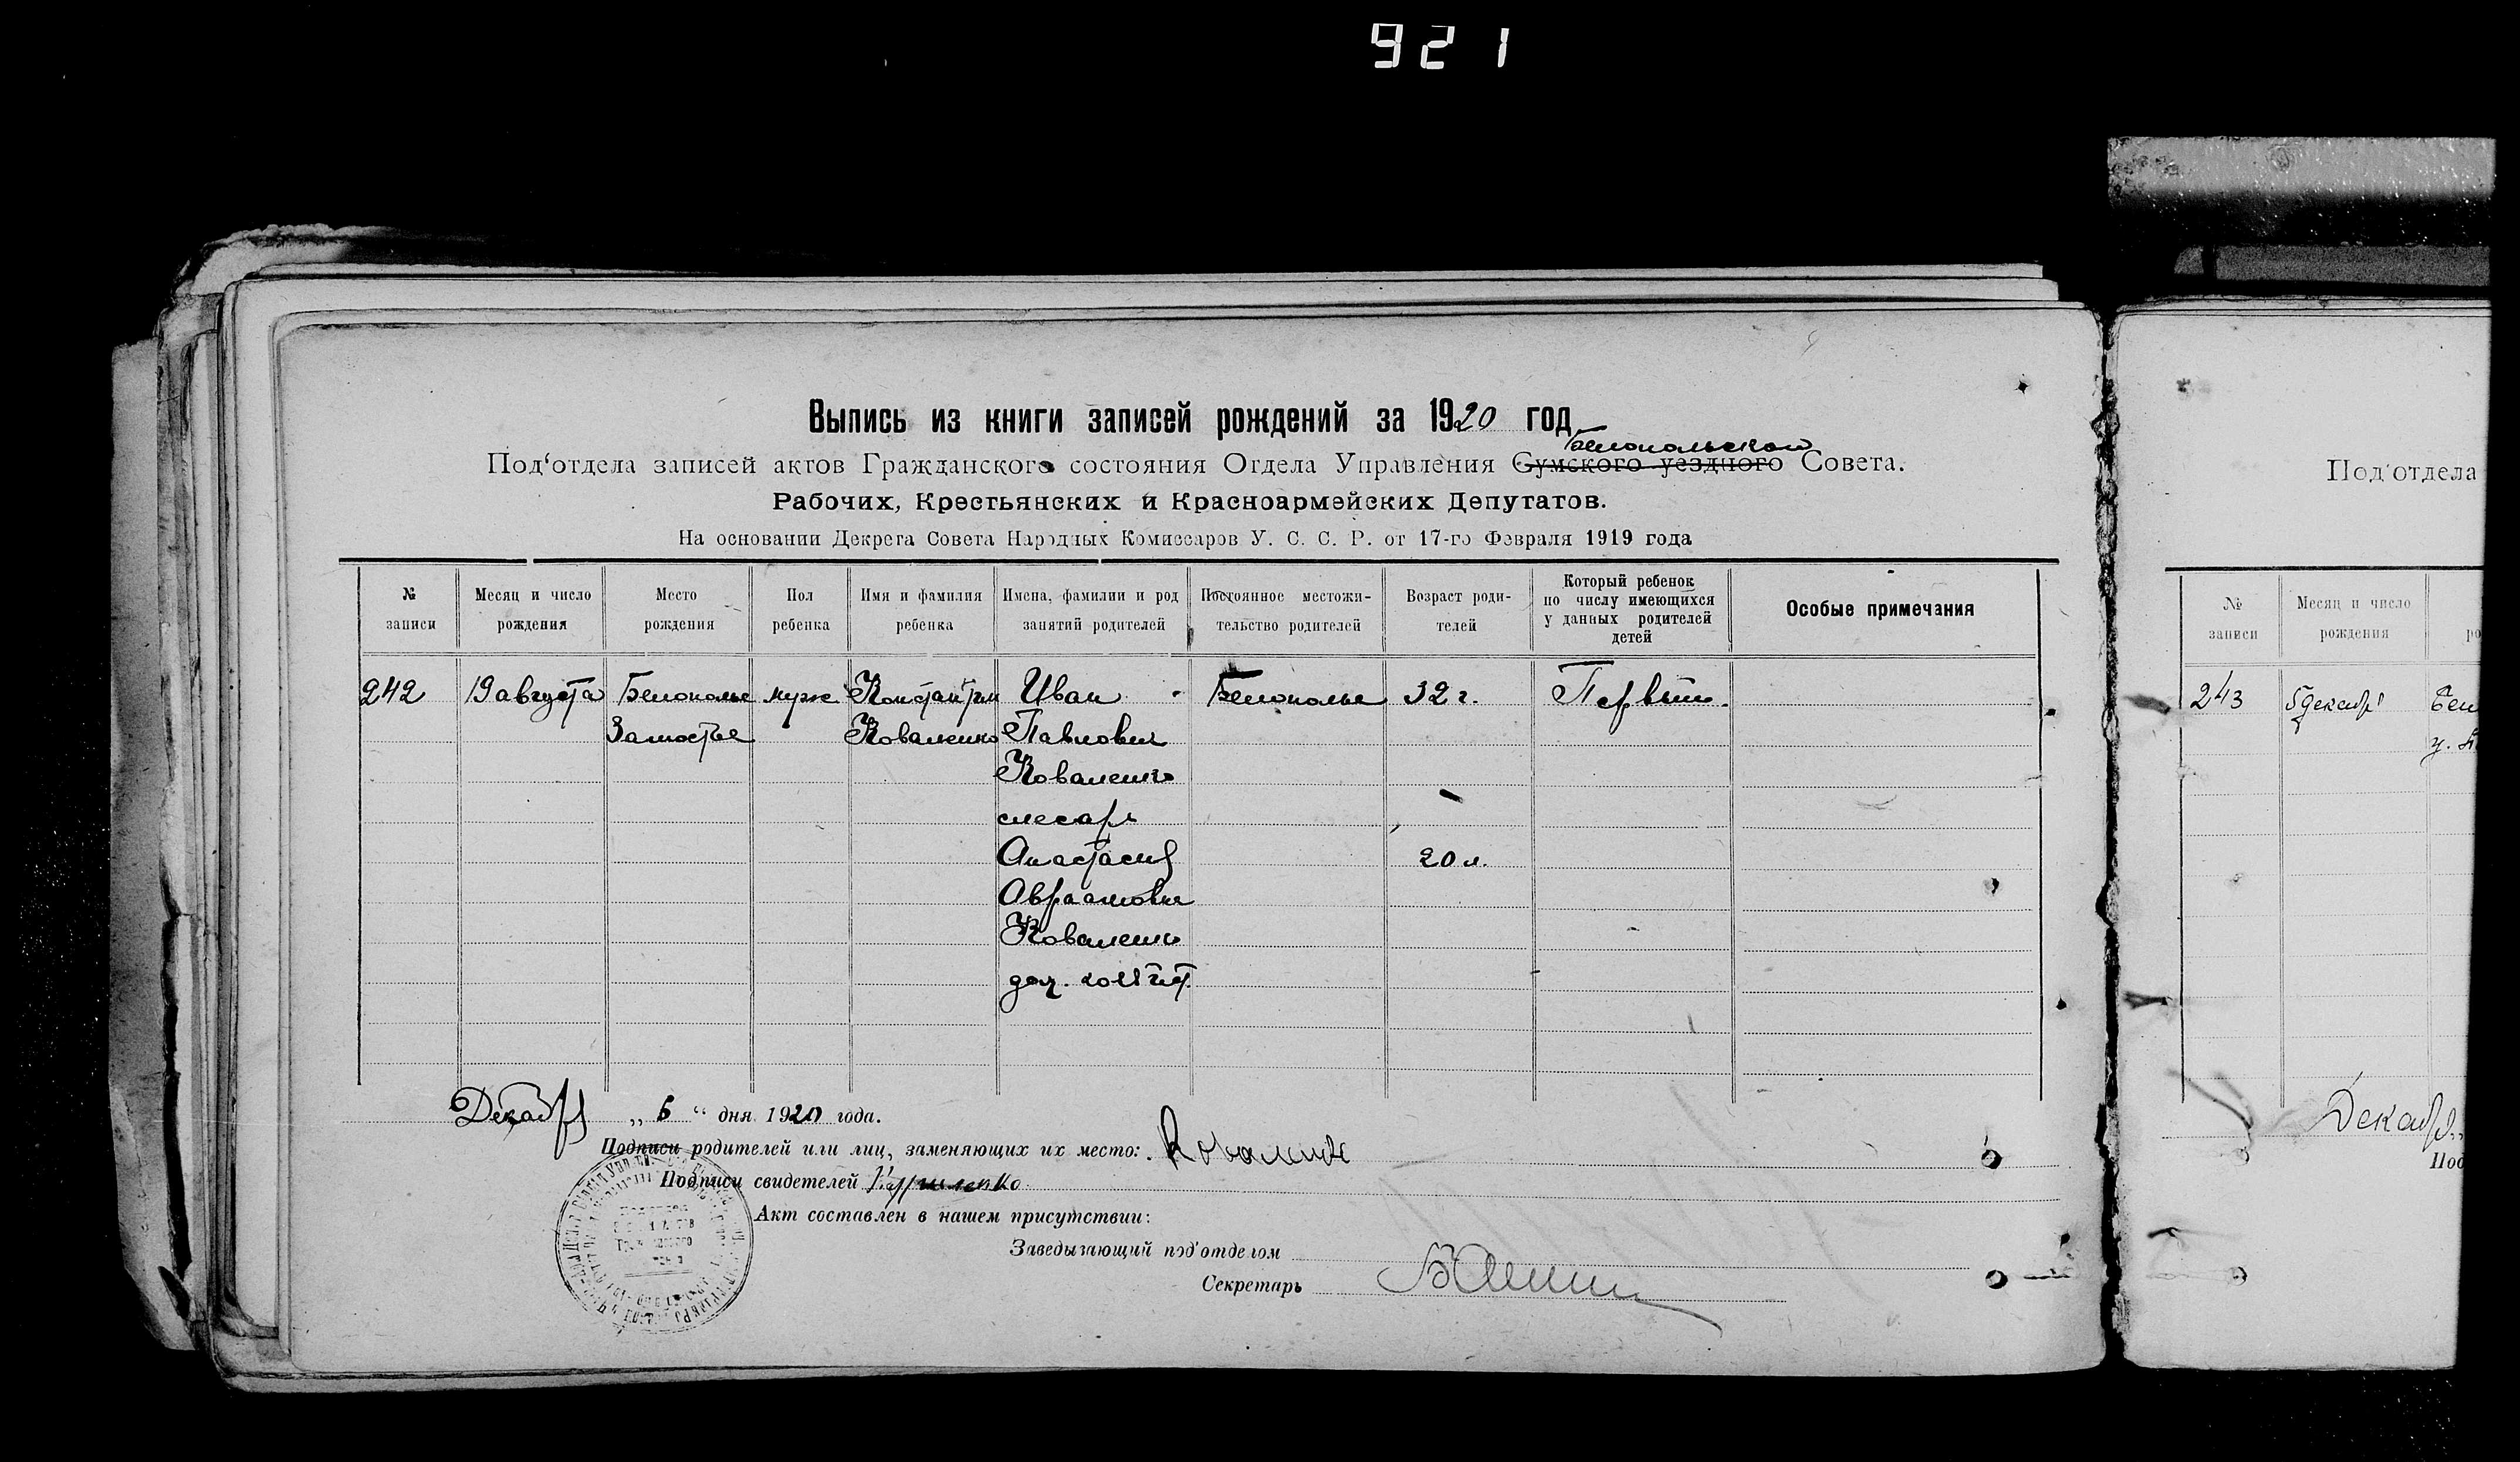 921
Выпись из книги записей рождений за 1920 год
Белопольской
Под'отдела записей актов Гражданского состояния Отдела Управления Сумского уездного Совета.
Рабочих, Крестьянских и Красноармейских Депутатов.
На основании Декрета Совета Народных Комиссаров У. С. С. Р. от 17-го Февраля 1919 года
№ записи Месяц и число рождения Место рождения Пол ребенка Имя и фамилия ребенка Имена, фамилии и род занятий родителей Постоянное местожительство родителей Возраст родителей Который ребенок по числу имеющихся у данных родителей детей Особые примечания
242 19 августа Белополье муж Константин Иван Белополье 32 г. Первый.
Замостье Коваленко Павлович
Коваленко
слесарь
Анастасия 20 л.
Авраамовна
Коваленко
дом. хоз.
Декабря „ 6 “ дня 1920 года.
Подписи родителей или лиц, заменяющих их место: Коваленко
Подписи свидетелей
Акт составлен в нашем присутствии:
Заведывающий под'отделом
Секретарь
Под'отдела
№ записи Месяц и число рождения
243 5 декабр Бел
Декабр
Под